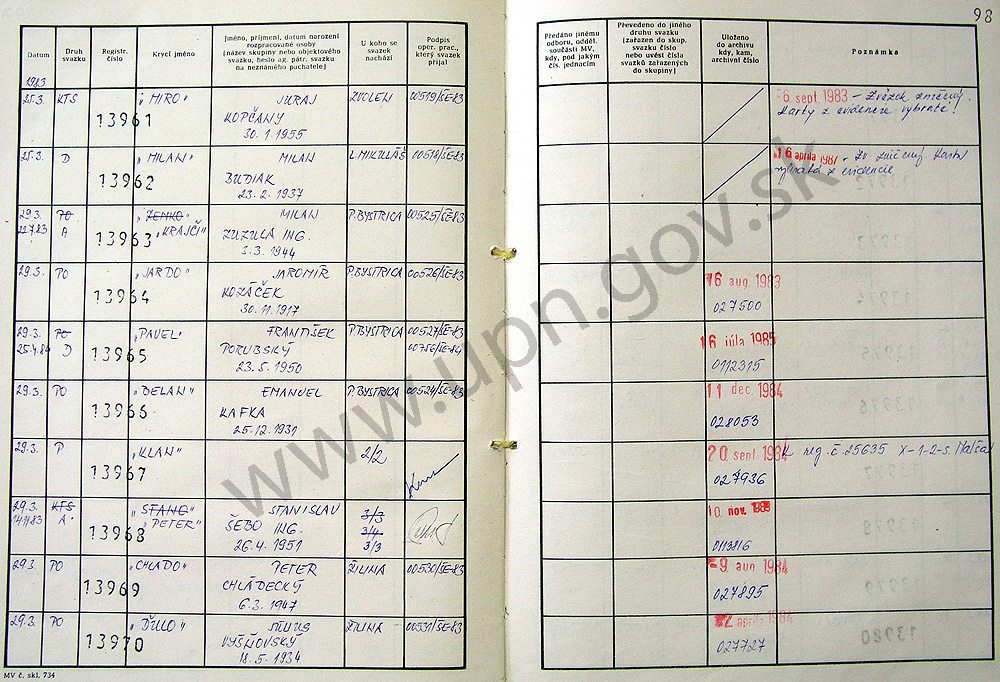 98
Datum
Druh svazku
Registr. číslo
Krycí jméno
Jméno, příjmení, datum narození rozpracované osoby (název skupiny nebo objektového svazku, heslo ag. pátr. svazku na neznámého pachatele)
U koho se svazek nachází
Podpis oper. prac., který svazek přijal
Předáno jinému odboru, odděl. součásti MV, kdy, pod jakým čís. jednacím
Převedeno do jiného druhu svazku (zařazen do skup. svazku číslo nebo uvést čísla svazků zařazených do skupiny)
Uloženo do archivu kdy, kam, archivní číslo
Poznámka
1983
25.3. KTS 13961 "MIRO" JURAJ ZVOLEN 00519/SE-83
KOPČANY
30.1.1955
6. sept. 1983 - Zväzok zničený.
Karty z evidencie vybraté!
25.3. D 13962 "MILAN" MILAN L. MIKULÁŠ 00518/SE-83
BUDIAK
23.2.1937
16 apríla 1987 - Zv. zničený karta
vybratá z evidencie
29.3. PO 13963 "ZENKO" MILAN P. BYSTRICA 00525/SE-83
22.7.83 A "KRAJČÍ" ZUZULA ING.
3.3.1944
29.3. PO 13964 "JARDO" JAROMÍR P. BYSTRICA 00526/SE-83
KOZÁČEK
30.11.1917
16 aug. 1983
027500
29.3. PO 13965 "PAVEL" FRANTIŠEK P. BYSTRICA 00527/SE-83
25.4.84 D PORUBSKÝ 00756/SE-84
23.5.1950
16 júla 1985
0112315
29.3. PO 13966 "DELAN" EMANUEL P. BYSTRICA 00524/SE-83
KAFKA
25.12.1931
11 dec. 1984
028053
29.3. P 13967 "KLAN" 2/2
20 sept. 1984
027936
K reg. č. 25635 X-1-2-S.
29.3. KTS 13968 "STANO" STANISLAV 3/3
14.11.83 A "PETER" ŠEBO ING. 3/4
26.4.1951 3/3
10 nov.
0113816
29.3. PO 13969 "CHLADO" PETER ŽILINA 00530/SE-83
CHLÁDECKÝ
6.3.1947
9 aug 1984
027895
29.3. PO 13970 ŽILINA 00531/SE-83
VYŠŇOVSKÝ
18.5.1934
2 apríla 1984
027727
MV č. skl. 734
www.upn.gov.sk